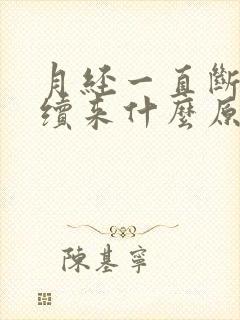 月経一直斷
續来什麼原
陳基寧